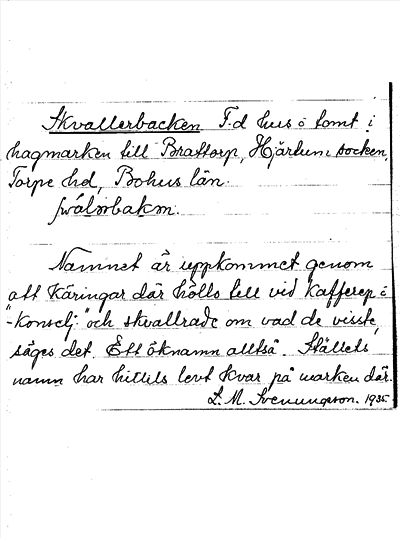 Skvallerbacken F.d hus o tomt i
hagmarken till Brattorp, Hjärtum socken,
Torpe hd, Bohus län.
Namnet är uppkommet genom
att käringar där hölls till vid kafferep o
"-konselj" och skvallrade om vad de visste,
säges det. Ett öknamn alltså. Ställets
namn har hittils levt kvar på marken där.
L. M. Svenungsson. 1935